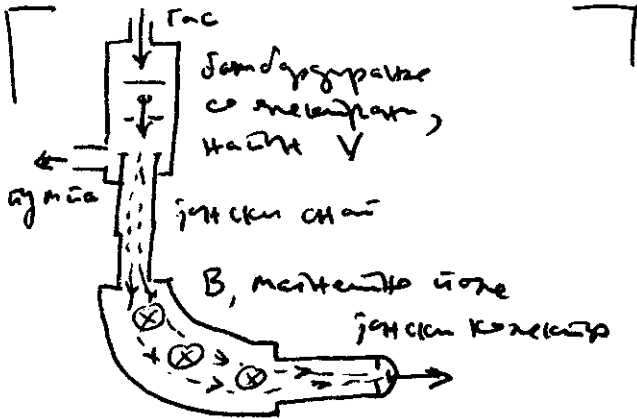 гас
бомбардирање
со електрони,
напон V
пумпа
јонски сноп
B, магнетно поле
јонски колектор